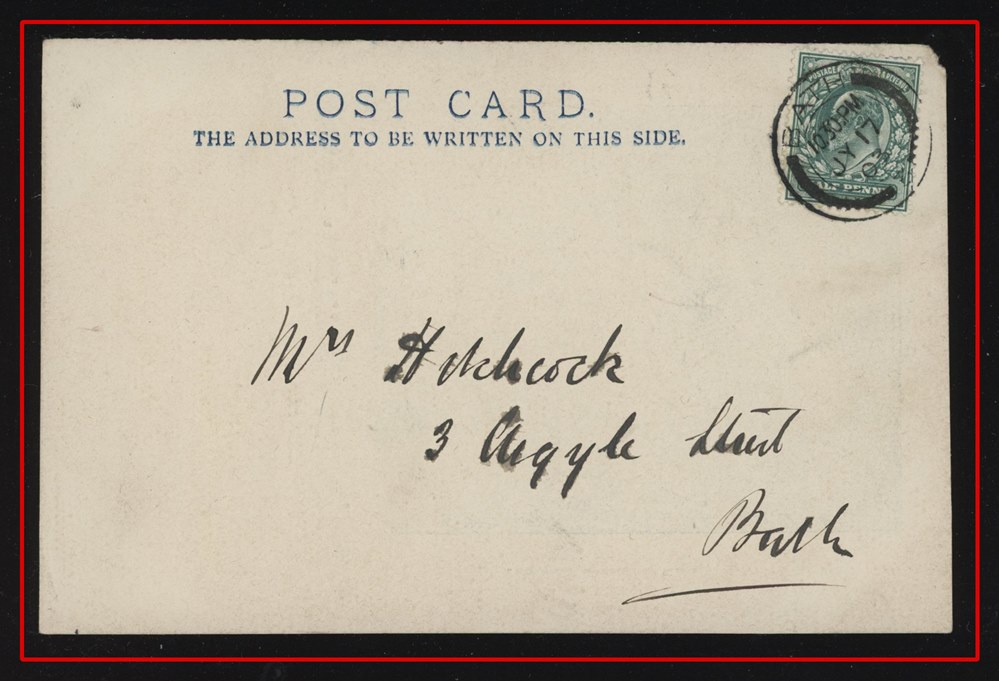 POST CARD.
THE ADDRESS TO BE WRITTEN ON THIS SIDE.
POSTAGE & REVENUE
HALF PENNY
BATH
10.30 PM
JY 17
03
Mrs Hitchcock
3 Argyle Street
Bath